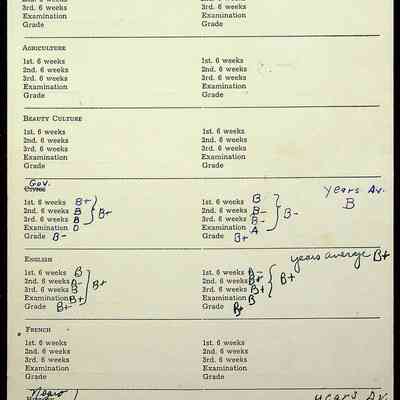 3rd. 6 weeks 3rd. 6 weeks
Examination Examination
Grade Grade
AGRICULTURE
1st. 6 weeks 1st. 6 weeks
2nd. 6 weeks 2nd. 6 weeks
3rd. 6 weeks 3rd. 6 weeks
Examination Examination
Grade Grade
BEAUTY CULTURE
1st. 6 weeks 1st. 6 weeks
2nd. 6 weeks 2nd. 6 weeks
3rd. 6 weeks 3rd. 6 weeks
Examination Examination
Grade Grade
Gov. years Av.
CIVICS B
1st. 6 weeks B+ 1st. 6 weeks B
2nd. 6 weeks B B+ 2nd. 6 weeks B- B-
3rd. 6 weeks B 3rd. 6 weeks B-
Examination D Examination A
Grade B- Grade B+
ENGLISH years average B+
1st. 6 weeks B 1st. 6 weeks A-
2nd. 6 weeks B- B+ 2nd. 6 weeks B+ B+
3rd. 6 weeks B 3rd. 6 weeks B+
Examination B+ Examination B
Grade B+ Grade B+
FRENCH
1st. 6 weeks 1st. 6 weeks
2nd. 6 weeks 2nd. 6 weeks
3rd. 6 weeks 3rd. 6 weeks
Examination Examination
Grade Grade
Negro years Av.